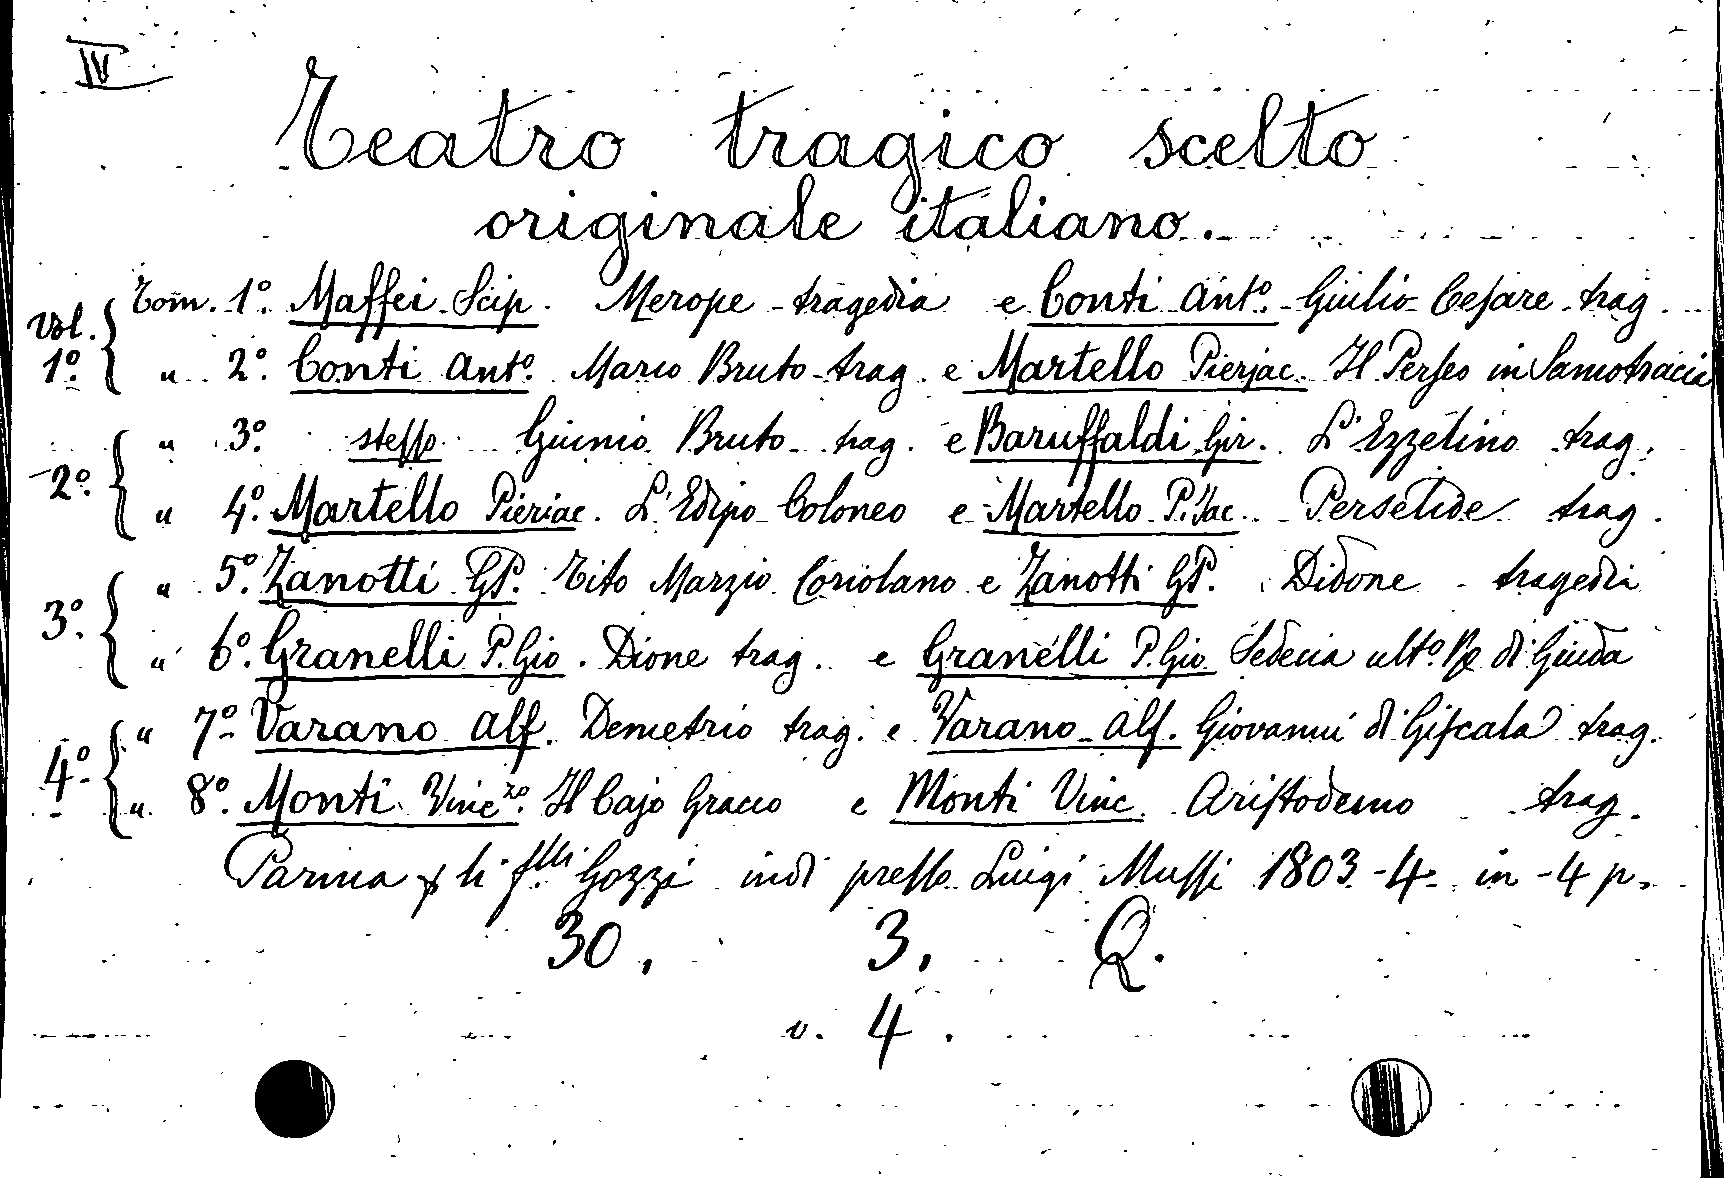 IV
Teatro tragico scelto
originale italiano.
Vol. 1º. Tom. 1º. Maffei Scip. Merope - tragedia e Conti Antº. Giulio Cesare trag.
" 2º. Conti Antº. Marco Bruto - trag. e Martello Pierjac. Il Perseo in Samotracia
2º. " 3º. stesso Giunio Bruto - trag. e Baruffaldi Gir. L'Ezzelino trag.
" 4º. Martello Pieriac. L'Edipo Coloneo e Martello P. Jac. Perselide trag.
3º. " 5º. Zanotti GP. Tito Marzio Coriolano e Zanotti GP. Didone - tragedia
" 6º. Granelli P. Gio. Dione trag. e Granelli P. Gio Sedecia ultº. Re di Giuda
4º. " 7º. Varano Alf. Demetrio trag. e Varano Alf. Giovanni di Giscala trag.
" 8º. Monti Vincᶻᵒ. Il Cajo Gracco e Monti Vinc. Aristodemo trag.
Parma p li flli Gozzi indi presso Luigi Mussi 1803-4. in-4 p.
30. 3. Q.
v. 4.